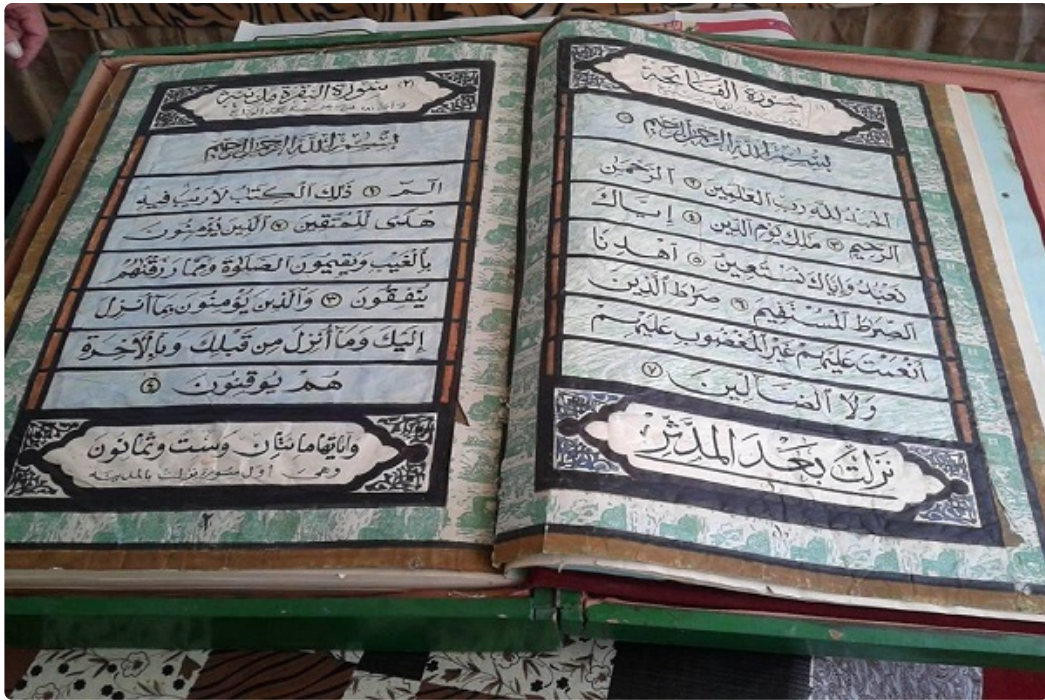 سورة الفاتحة
بسم الله الرحمن الرحيم ١
الحمد لله رب العالمين ٢ الرحمن
الرحيم ٣ مالك يوم الدين ٤ إياك
نعبد وإياك نستعين ٥ اهدنا
الصراط المستقيم ٦ صراط الذين
أنعمت عليهم غير المغضوب عليهم
ولا الضالين ٧
نزلت بعد المدثر
١
(٢) سورة البقرة مدنية
بسم الله الرحمن الرحيم
الٓمٓ ١ ذلك الكتب لا ريب فيه
هدى للمتقين ٢ الذين يؤمنون
بالغيب ويقيمون الصلوة ومما رزقنهم
ينفقون ٣ والذين يؤمنون بما أنزل
إليك وما أنزل من قبلك وبالأخرة
هم يوقنون ٤
وآياتها مائتان وست وثمانون
وهي أول سورة نزلت بالمدينة
٢